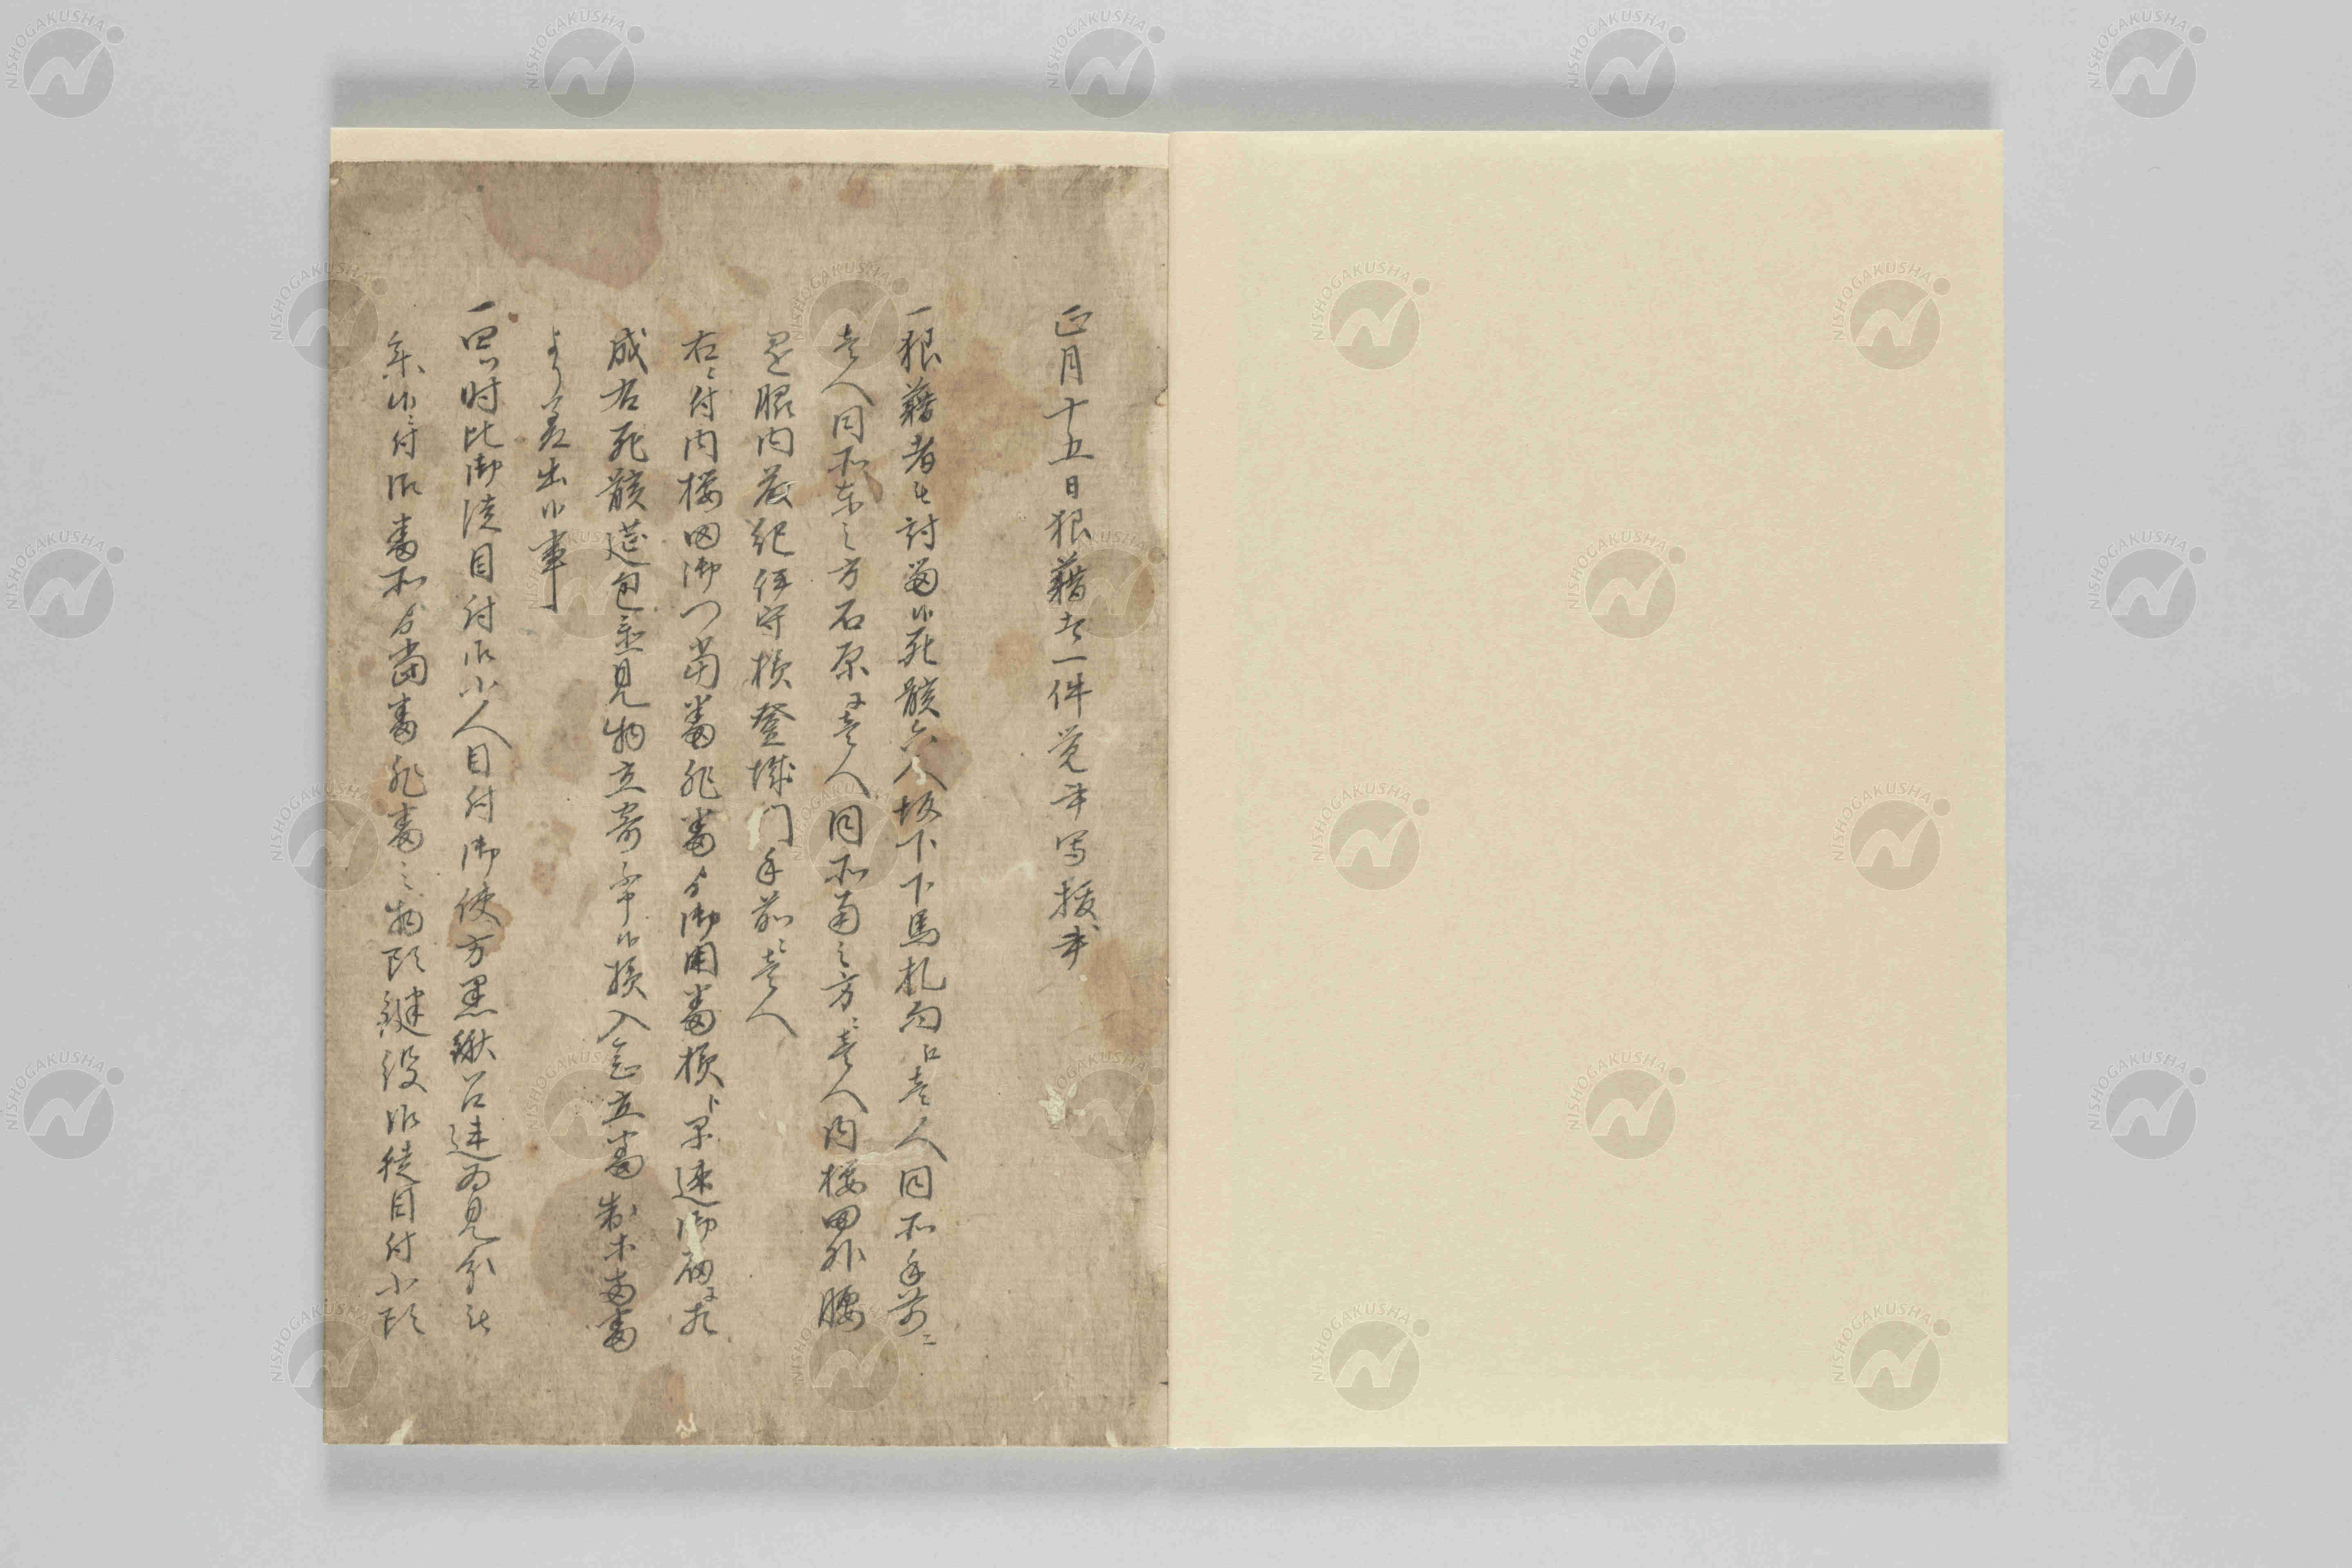 正月十五日狼藉者一件覚書写抜書
一狼藉者七討留候死骸六人坂下下馬札向江壱人同所手前ニ
壱人同所東之方石原に壱人同所南之方ニ壱人内桜田外腰
掛内安藤紀伊守様登城門手前ニ壱人
右ニ付内桜田御門当番非番ゟ御用番様江早速御届に相
成右死骸莚包ニ見物立寄不申候様入念立番制木当番
より差出候事
一四ツ時比御徒目付御小人目付御使方黒鍬召連為見分
来候ニ付御番所ゟ当番非番之物頭継役御徒目付小頭
NISHOGAKUSHA